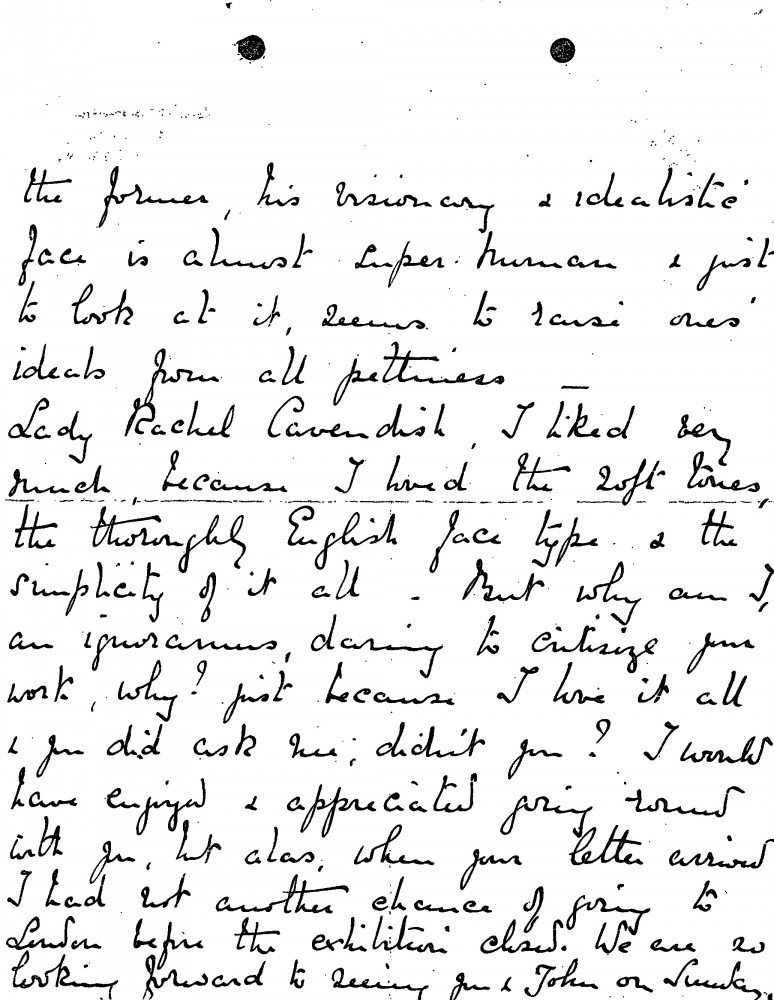 the former, his visionary & idealistic
face is almost super-human & just
to look at it, seems to raise ones'
ideals from all pettiness —
Lady Rachel Cavendish, I liked very
much, because I loved the soft tones,
the thoroughly English face type & the
simplicity of it all - But why am I,
an ignoramus, daring to critisize your
work, why? just because I love it all
& you did ask me, didn't you? I would
have enjoyed & appreciated going round
with you, but alas, when your letter arrived
I had not another chance of going to
London before the exhibition closed. We are so
looking forward to seeing you & John on Sunday,